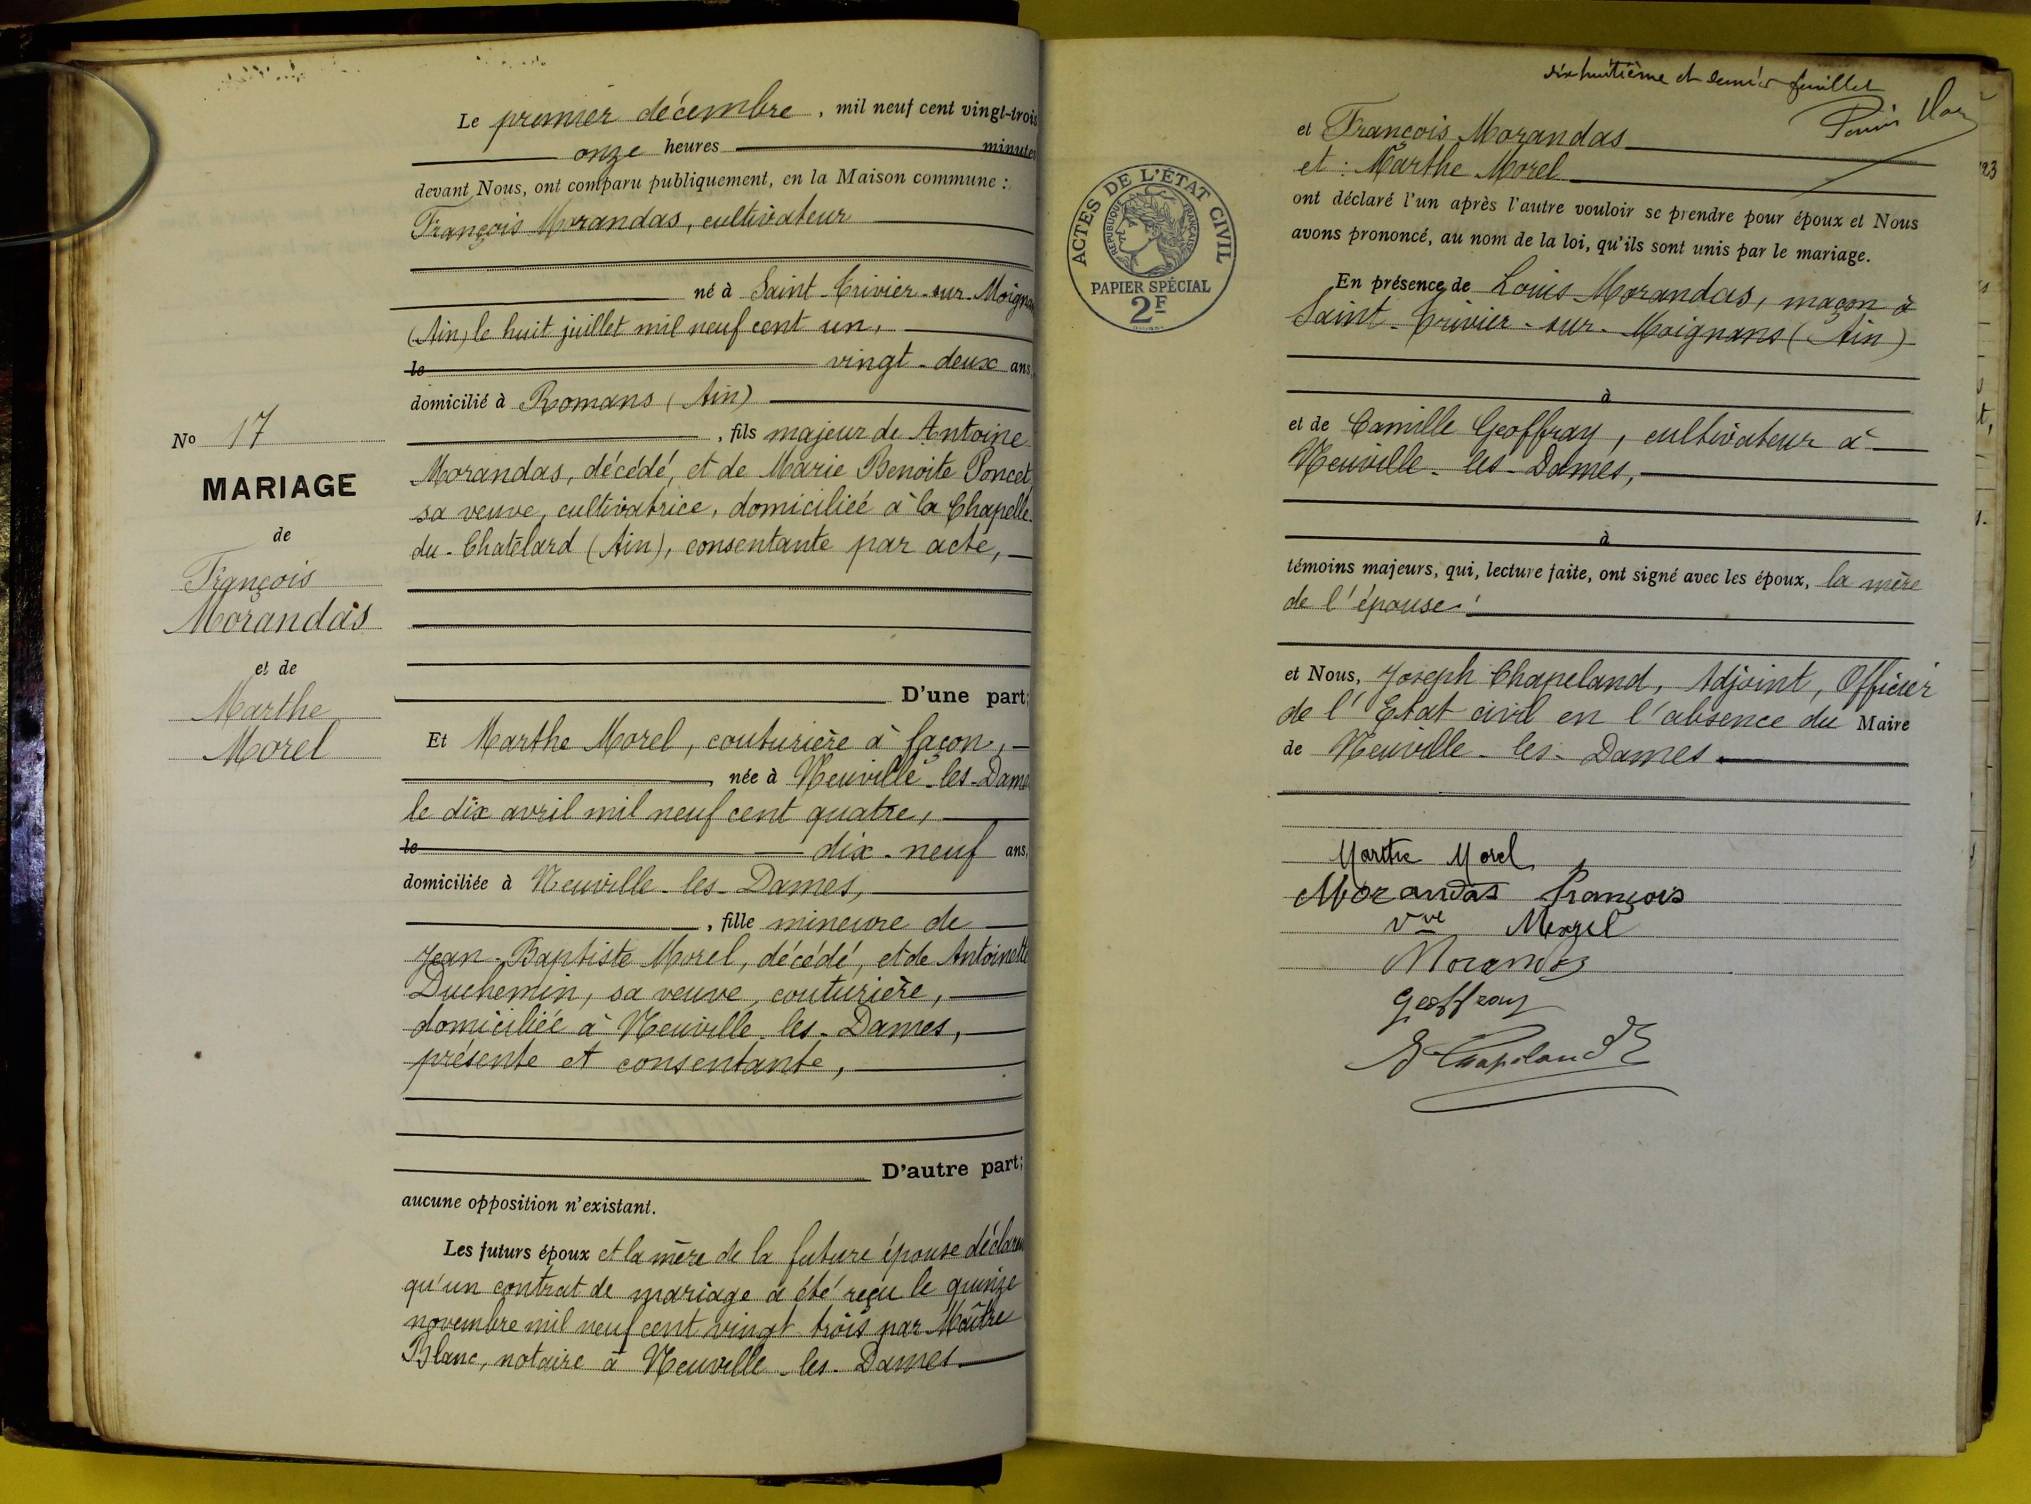 N° 17
MARIAGE
de
François
Morandas
et de
Marthe
Morel
Le premier décembre, mil neuf cent vingt-trois
onze heures minutes
devant Nous, ont comparu publiquement, en la Maison commune :
François Morandas, cultivateur
né à Saint-Trivier-sur-Moigna
(Ain) le huit juillet mil neuf cent un,
le vingt-deux ans,
domicilié à Romans (Ain)
, fils majeur de Antoine
Morandas, décédé, et de Marie Benoite Poncet
sa veuve, cultivatrice, domiciliée à la Chapelle-
du-Chatelard (Ain), consentante par acte,
D'une part;
Et Marthe Morel, couturière à façon,
née à Neuville-les-Dame
le dix avril mil neuf cent quatre,
le dix-neuf ans,
domiciliée à Neuville-les-Dames,
, fille mineure de
Jean-Baptiste Morel, décédé, et de Antoinette
Duchemin, sa veuve, couturière,
domiciliée à Neuville-les-Dames,
présente et consentante,
D'autre part;
aucune opposition n'existant.
Les futurs époux et la mère de la future épouse déclaren
qu'un contrat de mariage a été reçu le quinze
novembre mil neuf cent vingt trois par Maître
Blanc, notaire à Neuville-les-Dames
dix huitième et dernier feuillet
et François Morandas
et : Marthe Morel
ont déclaré l'un après l'autre vouloir se prendre pour époux et Nous
avons prononcé, au nom de la loi, qu'ils sont unis par le mariage.
ACTES DE L'ÉTAT CIVIL
RÉPUBLIQUE FRANÇAISE
PAPIER SPÉCIAL
2F
En présence de Louis Morandas, maçon à
Saint-Trivier-sur-Moignans (Ain)
à
et de Camille Geoffray, cultivateur à
Neuville-les-Dames,
à
témoins majeurs, qui, lecture faite, ont signé avec les époux, la mère
de l'épouse
et Nous, Joseph Chapeland, Adjoint, Officier
de l'Etat civil en l'absence du Maire
de Neuville-les-Dames
Marthe Morel
Morandas François
Vve Morel
Morandas
Geoffray
Chapeland